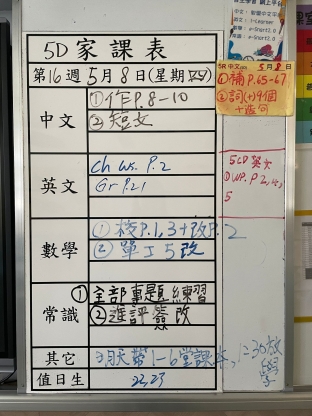 5D 家課表
第16週5月8日(星期四)
中文
①作P.8-10
②短文
英文
Ch Ws. P.2
Gr P.21
數學
①校P.1,3+改P.2
②單工5改
常識
①全部專題練習
②進評簽改
其它
明天帶1-6堂課本,1:30放學
值日生
22,23
5月8日
①補P.65-67
②詞(+)9個
+造句
5CD英文
①WP. P
5